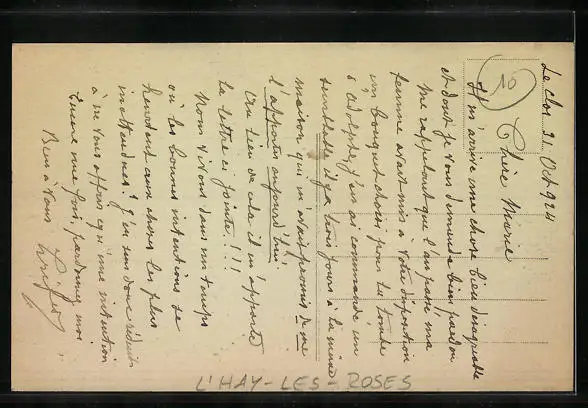 Le clos 31 Oct 924
10
Chère Marie
Il m'arrive une chose bien désagréable
et dont je vous demande bien pardon
Me rappelant que l'an passé ma
femme avait mis à votre disposition
un bouquet choisi pour la tombe
d'Adolphe, j'en ai commandé un
semblable il y a trois jours à la même
maison qui m'avait promis de me
l'apporter aujourd'hui
Au lieu de cela il m'apporte
la lettre ci jointe!!!
Nous vivons dans un temps
où les bonnes intentions se
heurtent aux choses les plus
inattendues! J'en suis donc réduit
à ne vous offrir qu'une intention
Encore une fois, pardonnez moi
Bien à vous
L'HAY-LES-ROSES